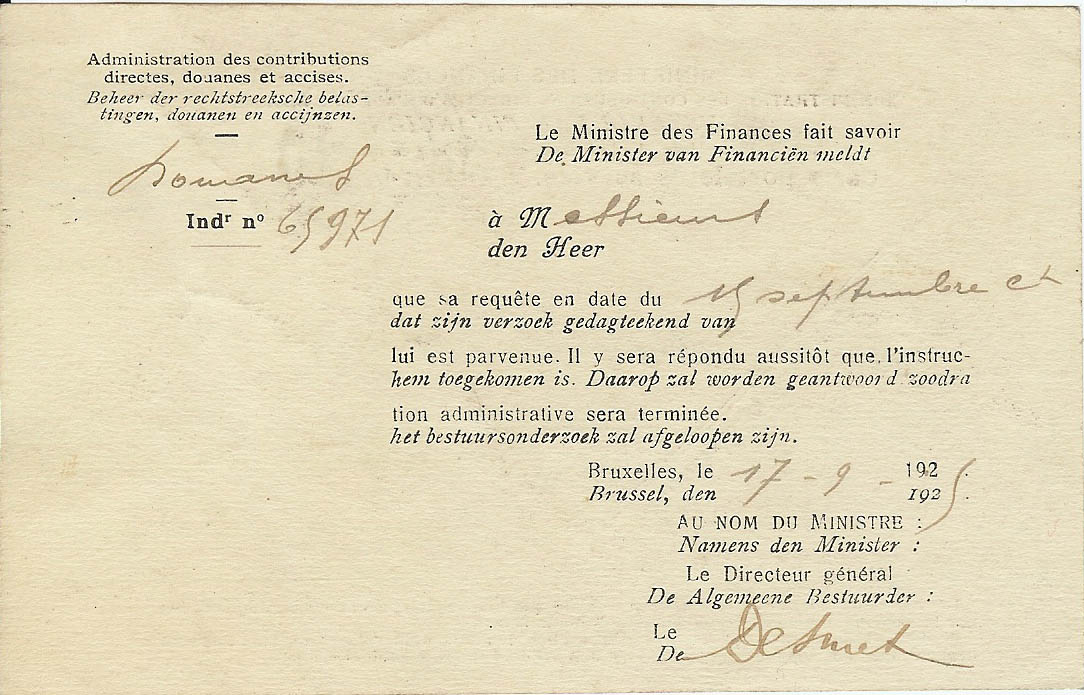 Administration des contributions
directes, douanes et accises.
Beheer der rechtstreeksche belas-
tingen, douanen en accijnzen.
Le Ministre des Finances fait savoir
De Minister van Financiën meldt
Douanes
Indr no 65971
à Messieurs
den Heer
que sa requête en date du 15 septembre ct
dat zijn verzoek gedagteekend van
lui est parvenue. Il y sera répondu aussitôt que l'instruc-
hem toegekomen is. Daarop zal worden geantwoord zoodra
tion administrative sera terminée.
het bestuursonderzoek zal afgeloopen zijn.
Bruxelles, le 17 - 9 - 1925.
Brussel, den 192 .
AU NOM DU MINISTRE :
Namens den Minister :
Le Directeur général
De Algemeene Bestuurder :
Le
De Desmet